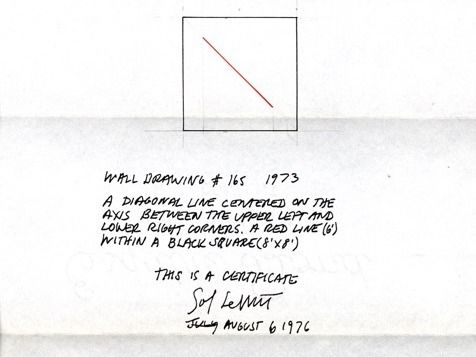 WALL DRAWING # 165 1973
A DIAGONAL LINE CENTERED ON THE
AXIS BETWEEN THE UPPER LEFT AND
LOWER RIGHT CORNERS. A RED LINE (6')
WITHIN A BLACK SQUARE (8'X8')
THIS IS A CERTIFICATE
Sol LeWitt
JULY AUGUST 6 1976